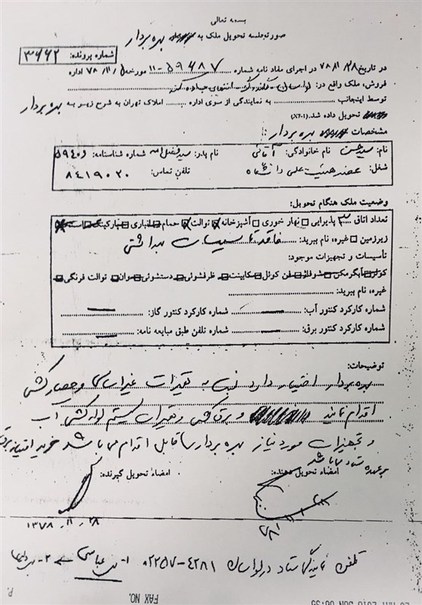 بسمه تعالی
صورتجلسه تحویل ملک به بهره بردار
شماره پرونده: ۳۶۶۲
در تاریخ ۷۸/۱۱/۲۸ در اجرای مفاد نامه شماره ۵۹۴۸۷-۱۱ مورخه ۷۸/۱۱/ اداره
فروش، ملک واقع در:
توسط اینجانب به نمایندگی از سوی اداره املاک تهران به شرح زیر به بهره بردار
تحویل داده شد.
مشخصات بهره بردار:
نام: سید حسن نام خانوادگی: آقائی نام پدر: سید فضل اله شماره شناسنامه:
شغل: عضو هیئت علمی دانشگاه تلفن تماس: ۸۴۱۹۰۲۰
وضعیت ملک هنگام تحویل:
تعداد اتاق پذیرایی نهار خوری آشپزخانه توالت حمام انباری پارکینگ
زیرزمین غیره، نام ببرید: فاقد تاسیسات بهداشتی
تأسیسات و تجهیزات موجود:
کولر آبگرمکن شوفاژ فن کوئل کابینت ظرفشوئی دستشوئی وان توالت فرنگی
غیره، نام ببرید:
شماره کارکرد کنتور آب: شماره کارکرد کنتور گاز:
شماره کارکرد کنتور برق: شماره تلفن طبق مبایعه نامه:
توضیحات:
بهره بردار اختیار دارد نسبت به تعمیرات غیر اساسی و حصارکشی
اقدام نماید و برق کشی و تعمیرات سیستم لوله کشی آب
و تجهیزات مورد نیاز بهره بردار قابل اقدام می باشد
ستاد میباشد
امضاء تحویل دهنده: امضاء تحویل گیرنده:
۷۸/۱۱/ ۱۳۷۸.۱۱.۲۸
تلفن نمایندگی ستاد در لواسان ۰۲۲۵۷-۴۲۸۱
FAX NO.